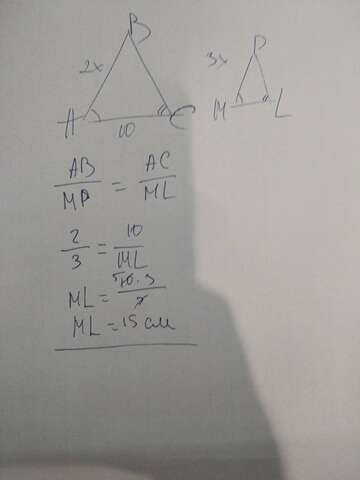 B
2x
A
C
10
P
3x
M
L
AB/MP = AC/ML
2/3 = 10/ML
ML = 10·3/2
ML = 15 см